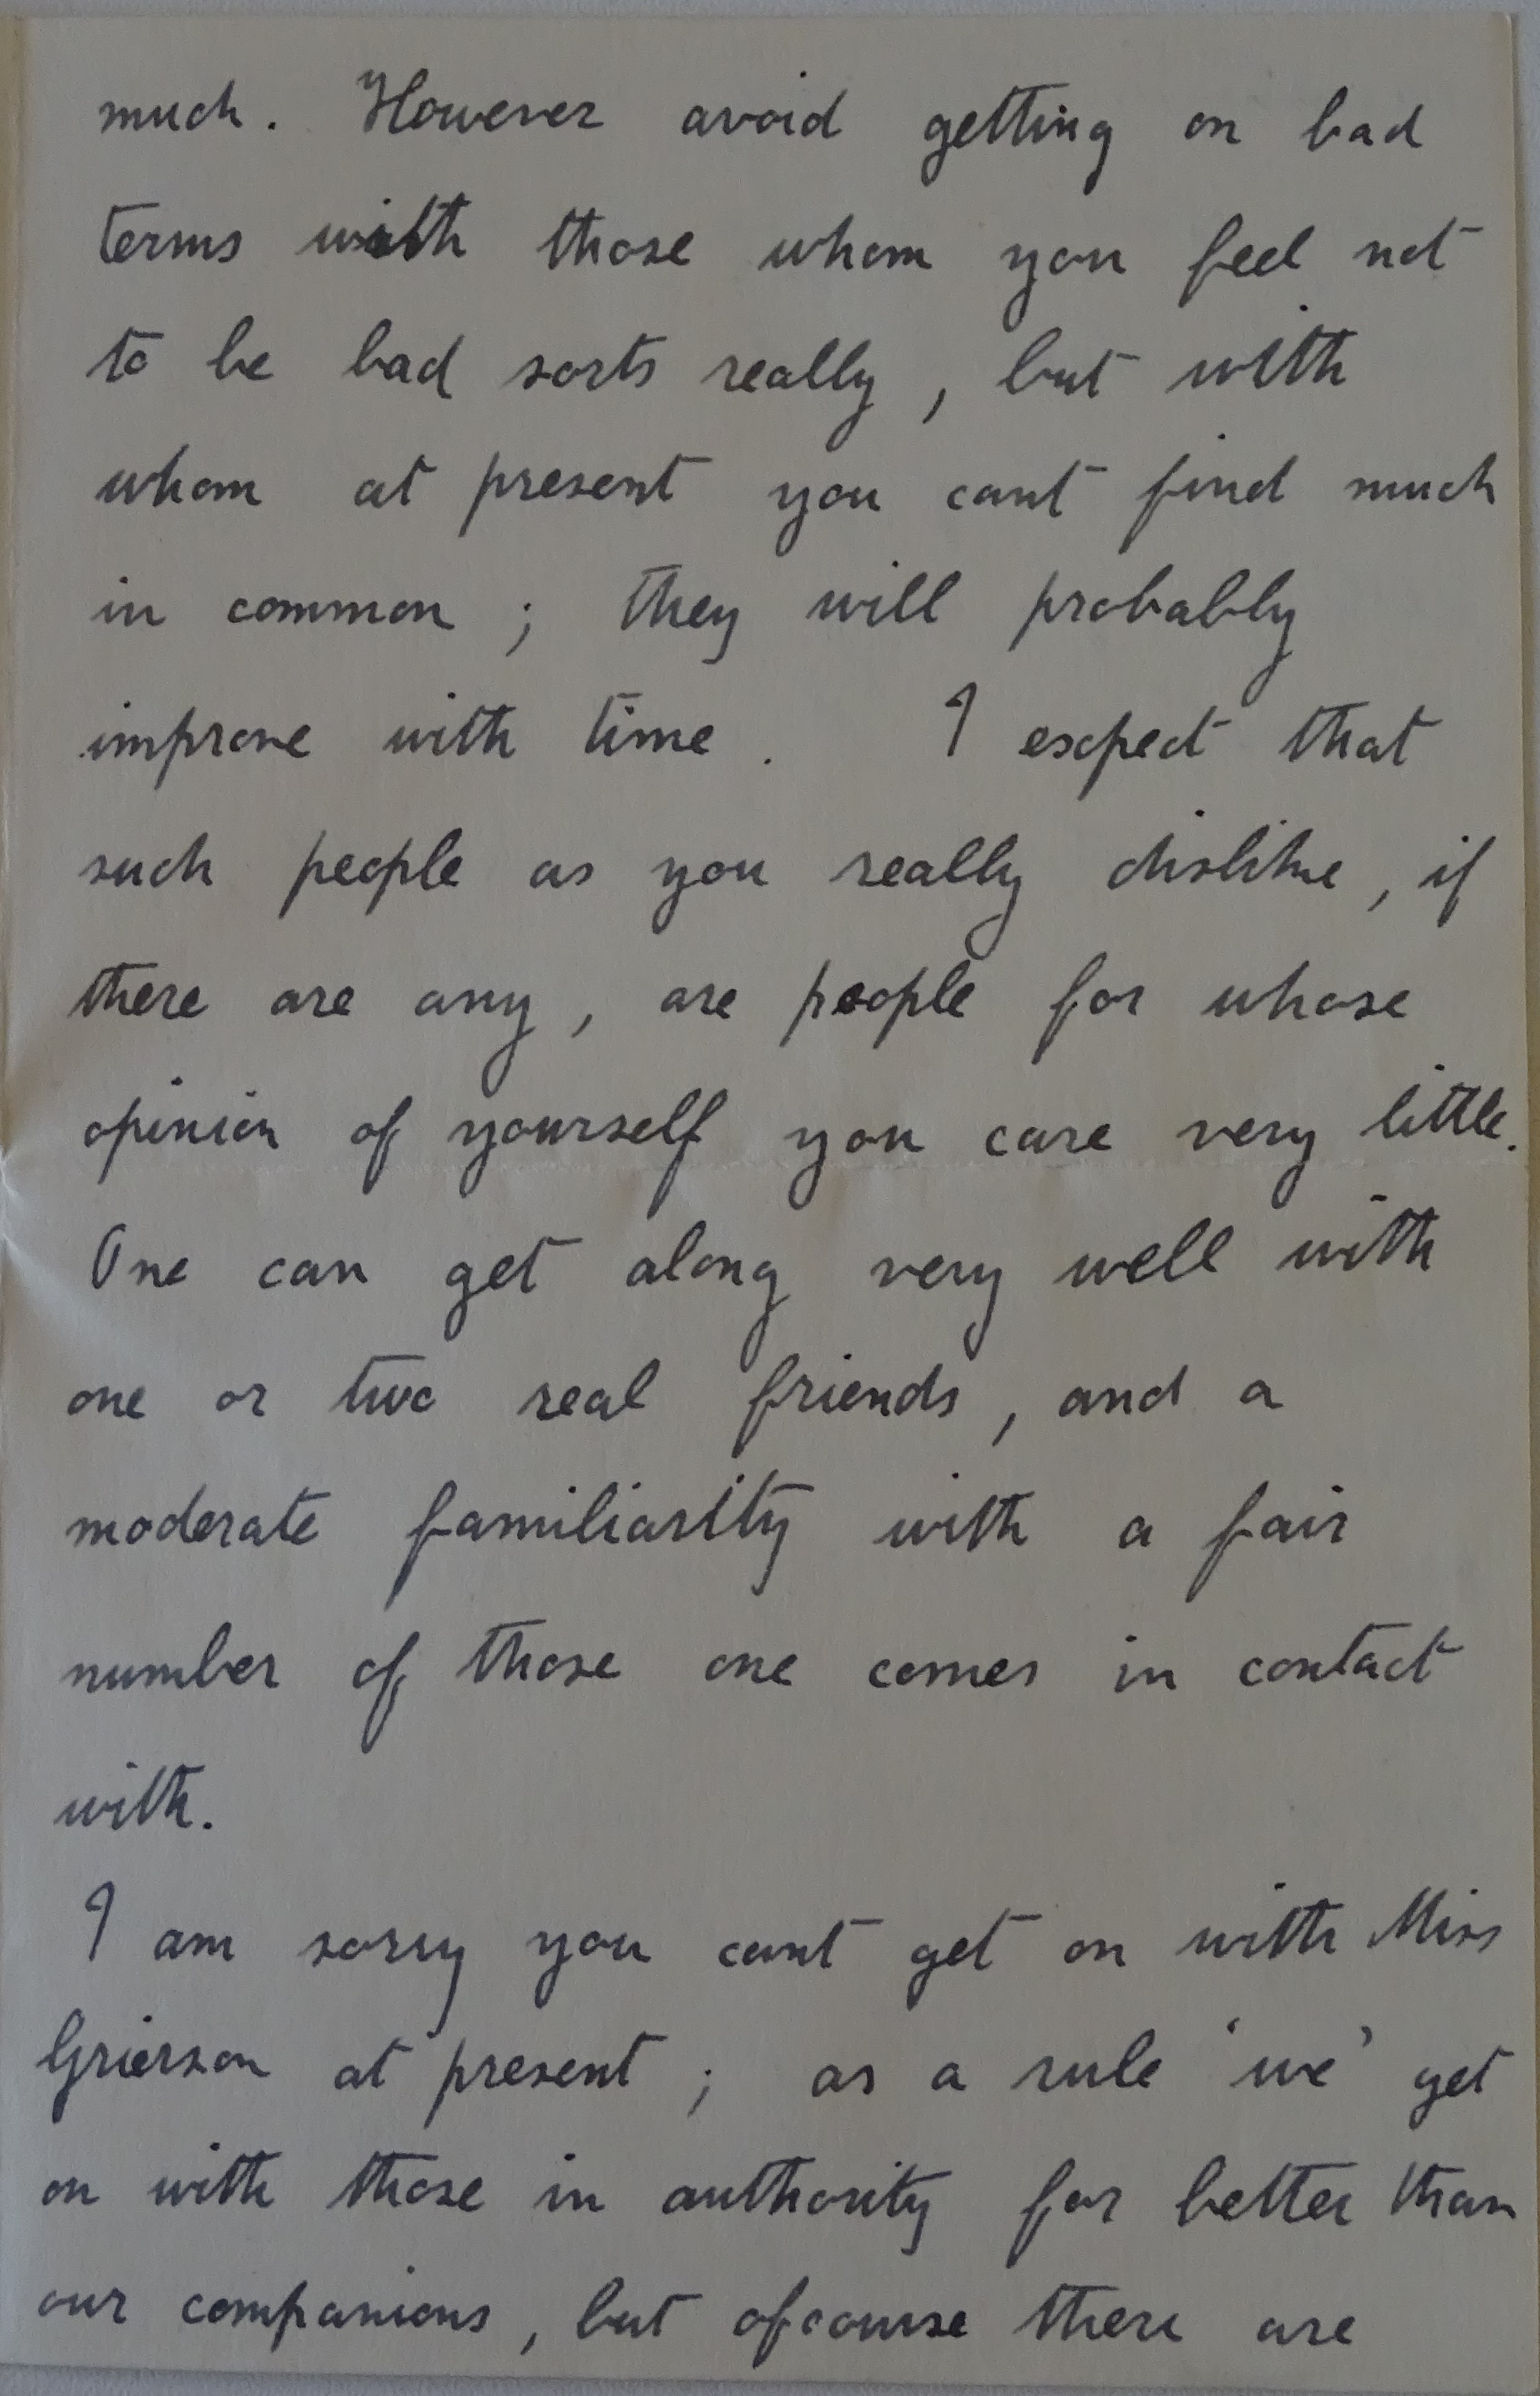 much. However avoid getting on bad
terms with those whom you feel not
to be bad sorts really, but with
whom at present you cant find much
in common; they will probably
improve with time. I expect that
such people as you really dislike, if
there are any, are people for whose
opinion of yourself you care very little.
One can get along very well with
one or two real friends, and a
moderate familiarity with a fair
number of those one comes in contact
with.
I am sorry you cant get on with Miss
Grierson at present; as a rule 'we' get
on with those in authority far better than
our companions, but ofcourse there are